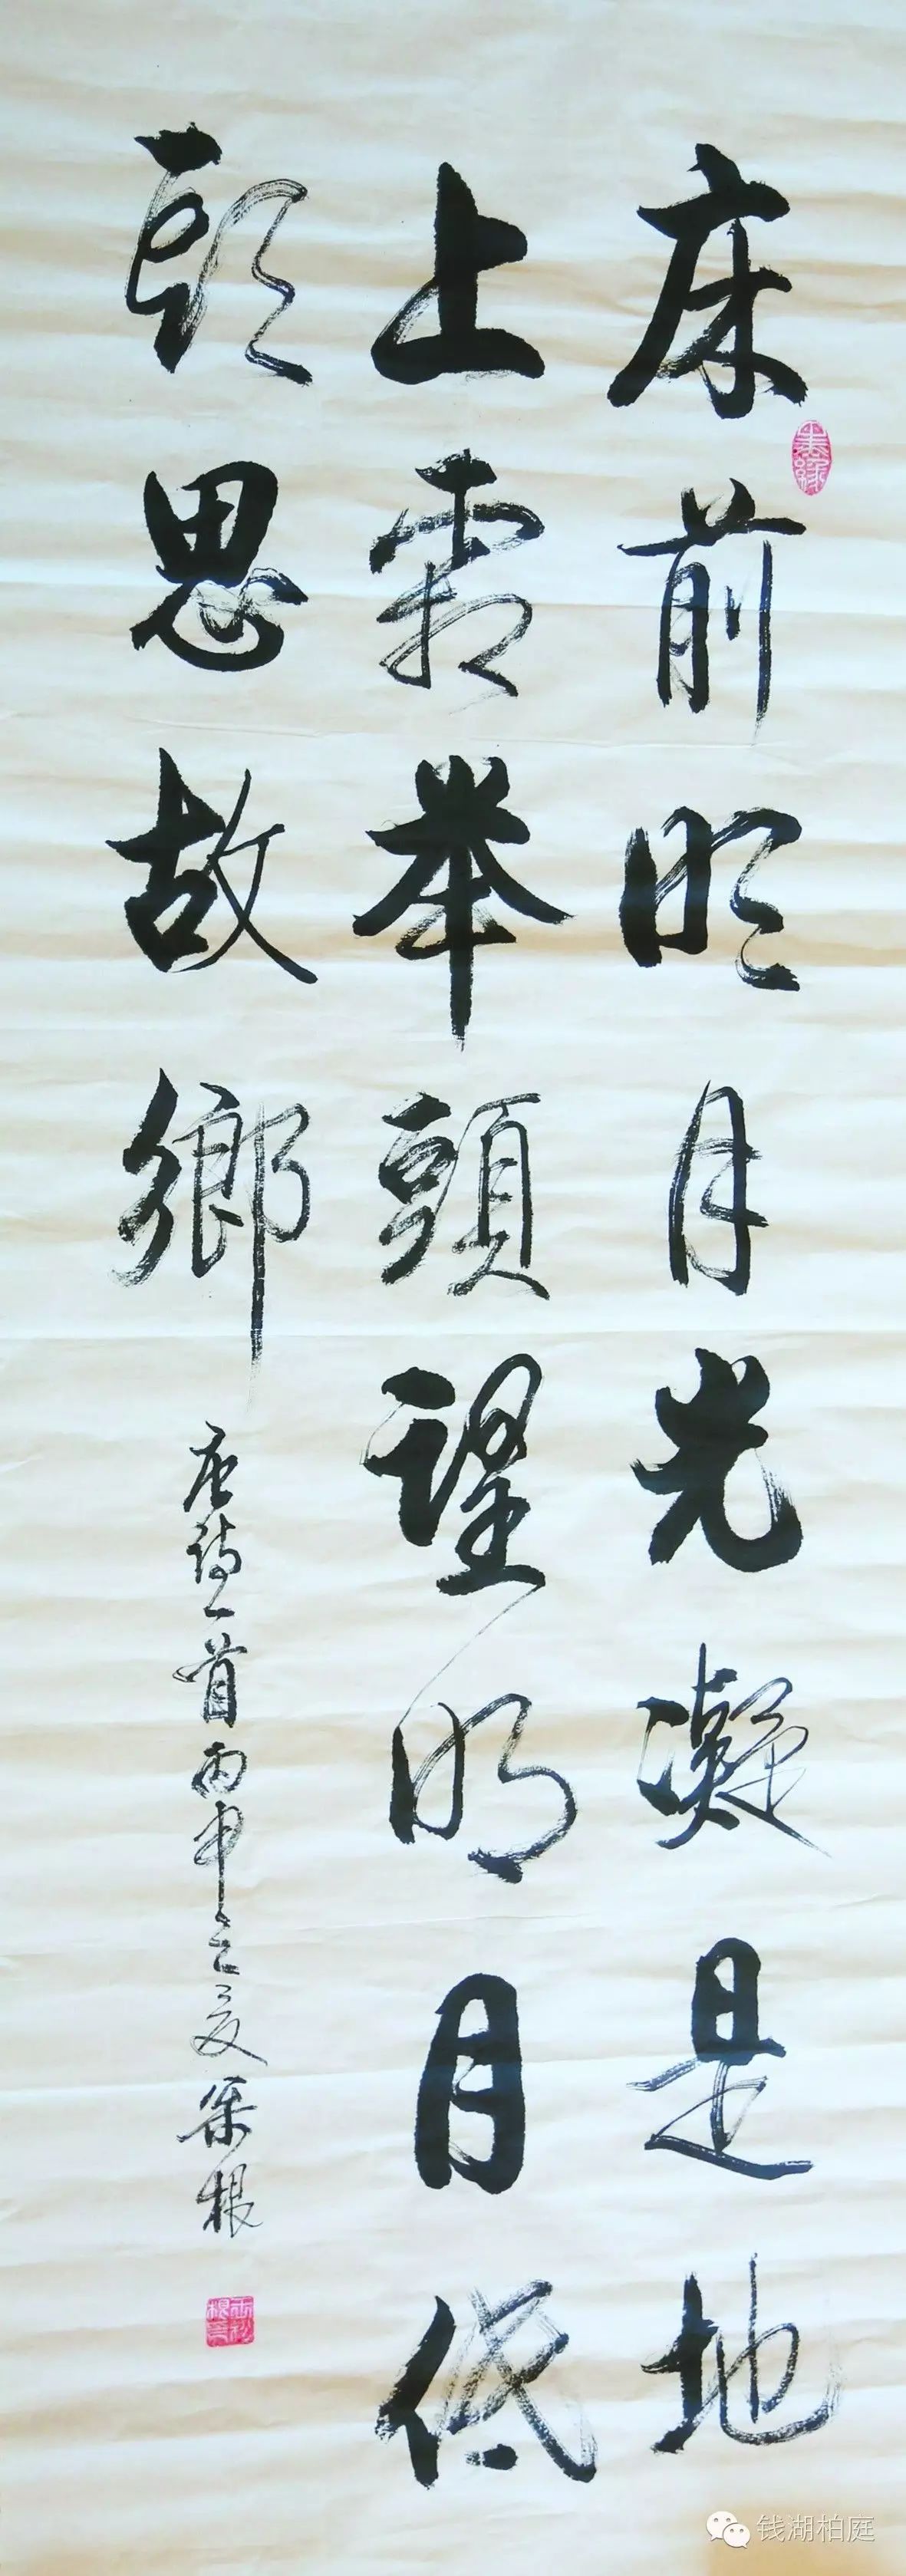 床前明月光凝是地
上霜举頭望明月低
頭思故鄉
唐詩一首丙申立夏 根
钱湖柏庭